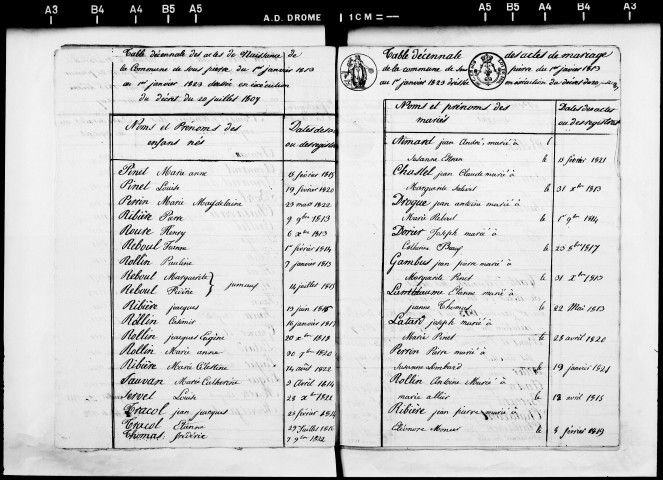 A3 B4 A4 B5 A5
A.D. DROME 1 CM =
A5 B5 A4 B4 A3
Table décennale des actes de Naissance de
la Commune de sous pierre du 1er janvier 1813
au 1er janvier 1823 dressée en exécution
du décret du 20 juillet 1807
Noms et Prénoms des
enfans nés
Dates des
ou des regist
Pinel Marie anne 15 février 1815
Pinel Louise 19 février 1820
Perrin Marie Magdelaine 23 mars 1822
Ribière Pierre 9 9bre 1813
Roure Henry 6 xbre 1813
Reboul 1er février 1814
Rollin Pauline 7 janvier 1813
Reboul Marguerite
Reboul jumeaux 14 juillet 1815
Ribière jacques 13 juin 1816
Rollin Casimir 16 janvier 1817
Rollin jacques Eugène 20 xbre 1818
Rollin Marie anne 20 7bre 1820
Ribière Marie Célestine 14 août 1822
Sauvan Marie Catherine 2 Avril 1814
Servel Louise 28 xbre 1822
Tracol jean jacques 25 février 1814
Tracol Etienne 29 juillet 1816
Thomas 7 9bre 1822
Table décennale des actes de mariage
de la commune de sous pierre du 1er janvier 1813
au 1er janvier 1823 dressée en exécution du décret du 20
Noms et prénoms des
mariés
Dates des actes
ou des registres
Aimard jean André, marié à
Suzanne le 13 février 1821
Chastel jean Claude marié à
Marguerite le 31 xbre 1813
Drogue jean antoine marié à
Marie Reboul le 1er 9bre 1814
Dorier Joseph marié à
Catherine le 23 8bre 1817
Gambus jean pierre marié à
Marguerite Pinet le 31 xbre 1813
Etienne marié à
Thomas le 22 Mai 1813
Latard joseph marié à
Marie Pinet le 28 avril 1820
Perrin Pierre marié à
Suzanne Lombard le 19 janvier 1821
Rollin Antoine Marié à
marie le 12 avril 1815
Ribière jean pierre marié à
Eléonore le 5 février 1819